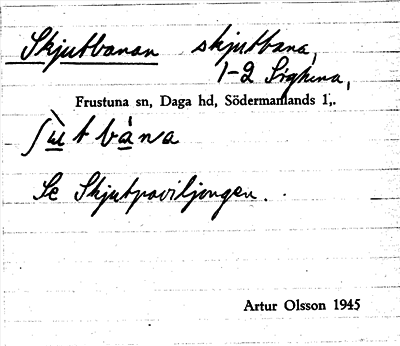 Skjutbanan skjutbana,
1-2 Sighina,
Frustuna sn, Daga hd, Södermanlands l,.
ʃu̲t bána
Se Skjutpaviljongen.
Artur Olsson 1945